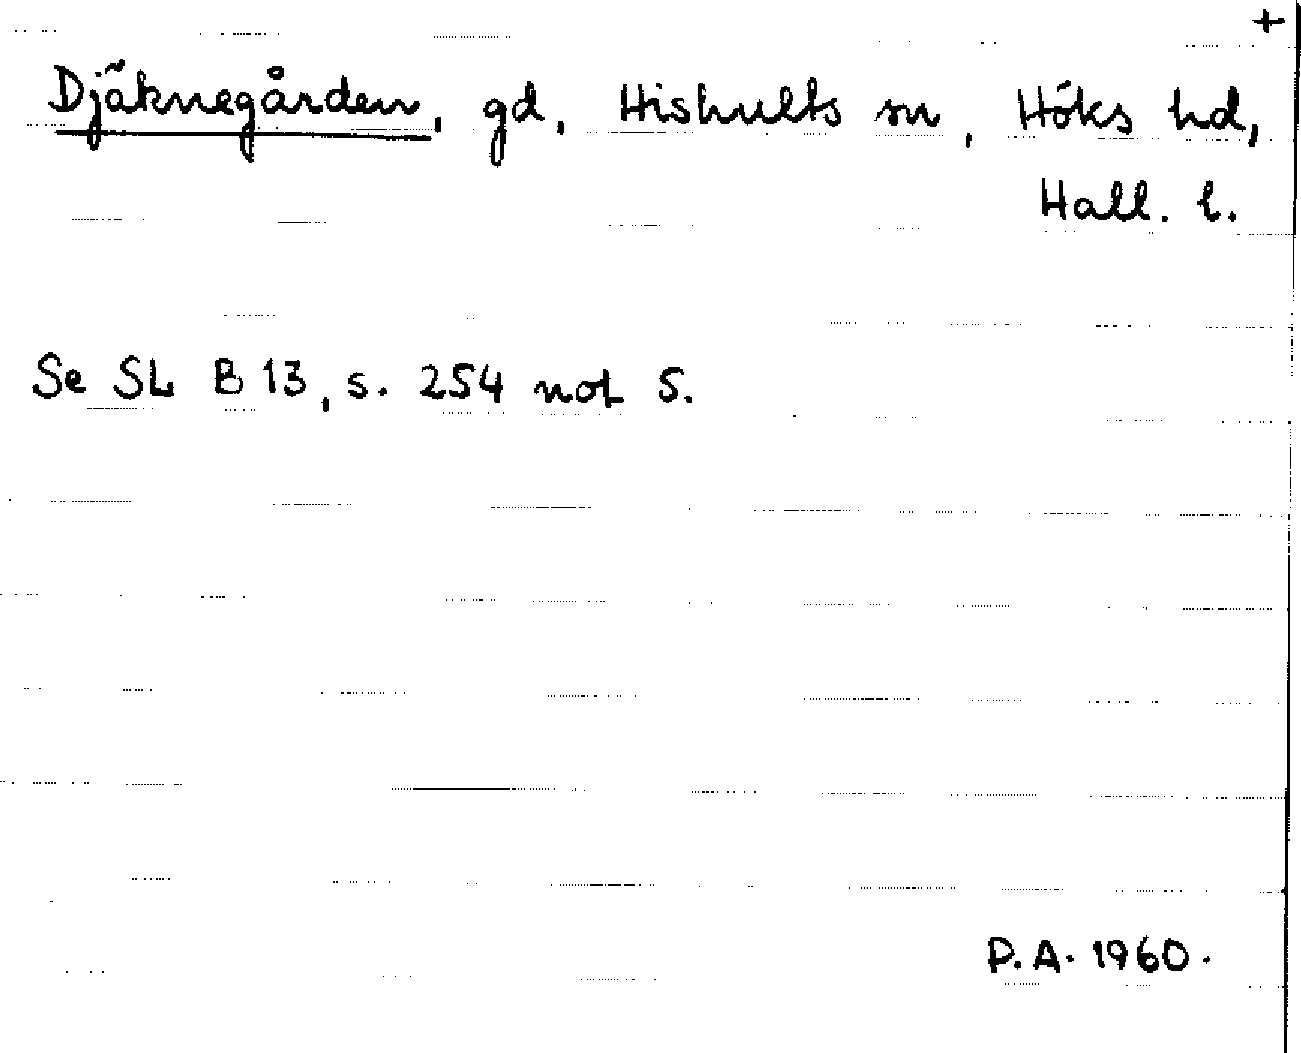 +
Djäknegården, gd, Hishults sn, Höks hd,
Hall. l.
Se SL B 13, s. 254 not 5.
P.A. 1960.